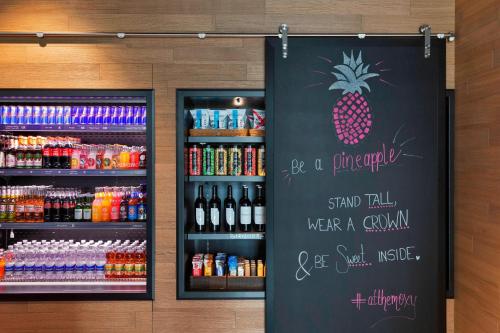 Be a pineapple
STAND TALL,
WEAR A CROWN
& BE Sweet INSIDE.
#atthemoxy